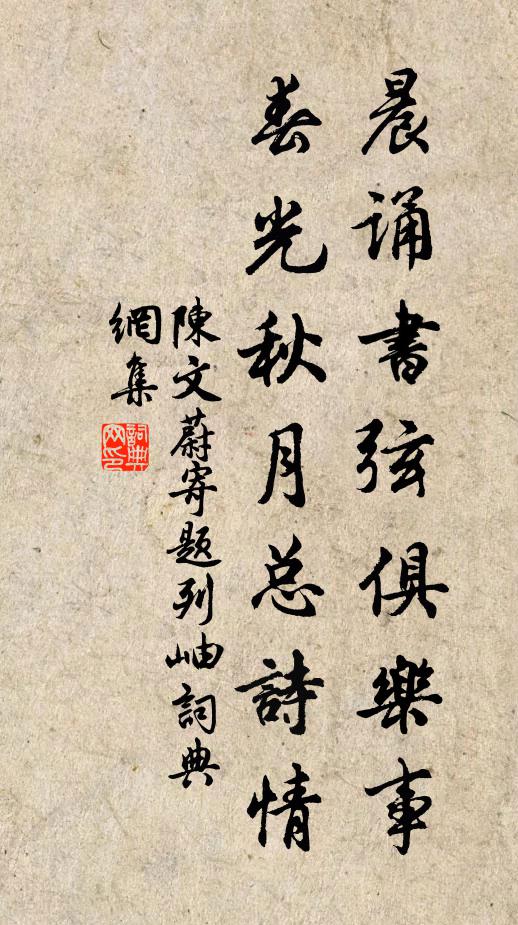 晨诵書弦俱樂事
春光秋月总詩情
陳文蔚寄题列岫詞典
網集
詞典
网印